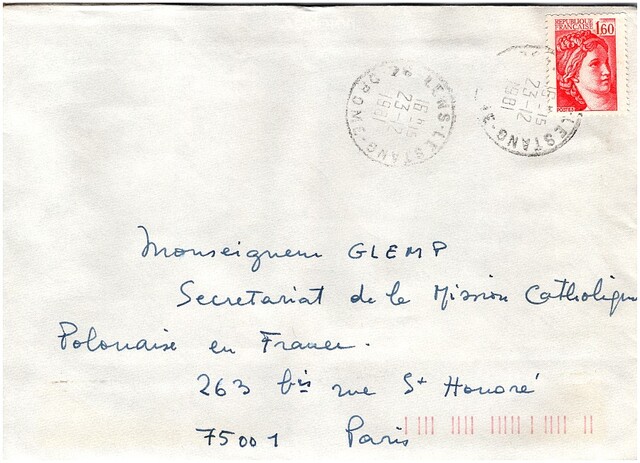 REPUBLIQUE
FRANÇAISE
1,60
POSTES
LENS-LESTANG
DROME
16 H 15
23-12
1981
16 H 15
23-12
1981
LESTANG
Monseigneur GLEMP
Secretariat de la Mission Catholique
Polonaise en France.
263 bis rue St Honoré
75001 Paris